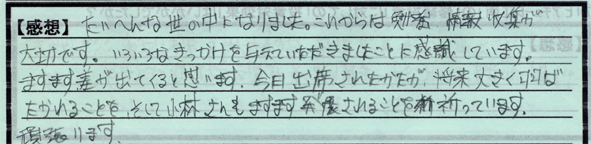 【感想】たいへんな世の中になりました。これからは 情報収集が
大切です。いろいろなきっかけを与えていただきましたことに感謝しています。
ますます差が出てくると思います。今日出席されたかたが、将来大きく
たかれることを、そして小林さんもますます発展されることを祈っています。
頑張ります。